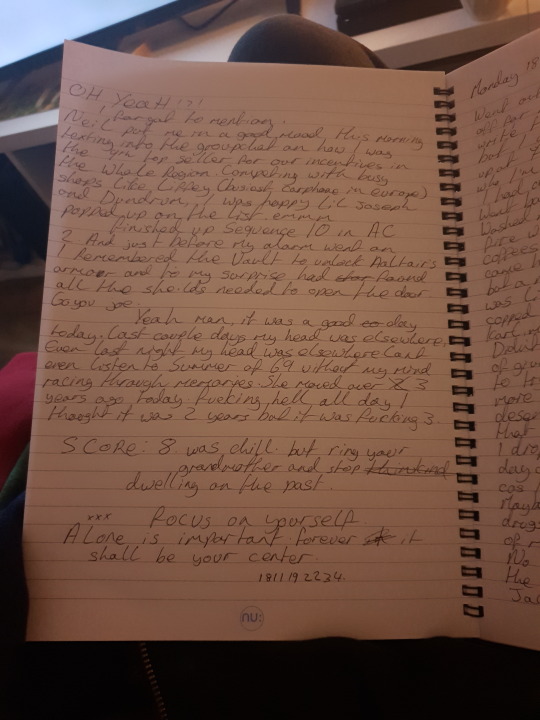 OH, Yeah!?!
Forgot to mention.
Neil put me in a good mood, this morning
texting into the groupchat on how I was
the top seller for our incentives in
the whole Region. Competing with busy
shops like Liffey (busiest Carphone in europe)
and Dundrum, I was happy lil Joseph
popped up on the list. emmm
Finished up Sequence 10 in AC
2 And just before my alarm went on
I Remembered the Vault to unlock Aaltair's
armour and to my surprise had found
all the sheilds needed to open the door
Go you joe.
Yeah man, it was a good day
today. Last couple days my head was elsewhere,
Even last night my head was elsewhere Cant
even listen to Summer of 69 without my mind
racing through memoryes. She moved over 3
years ago today fucking hell, all day I
thought it was 2 years but it was fucking 3.
SCORE: 8 was chill but ring your
grandmother and stop
dwelling on the past.
xxx Focus on yourself
Alone is important forever it
shall be your center.
181119 2234.
nu:
Monday 18
Went out
off for
write
but I
upat
who
I had
Want
Washed
Fire
coffees
came
but a
was
copped
Didnt
of
to
more
deser
that
I drop
day
cos
Maybe
drugs
of
No
the
Ja